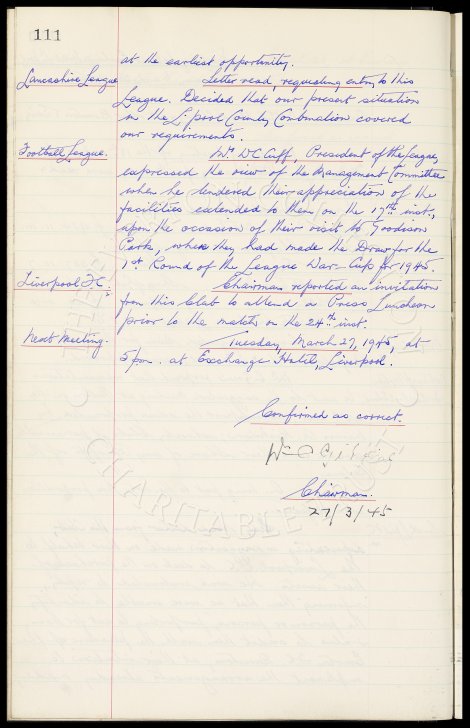 111
at the earliest opportunity.
Lancashire League
Letter read, requesting entry to this
League. Decided that our present situation
in the L'pool County Combination covered
our requirements.
Football League.
Mr. W C Cuff, President of the League,
expressed the view of the Management Committee
when he tendered their appreciation of the
facilities extended to them, on the 17th inst.,
upon the occasion of their visit to Goodison
Park, where they had made the Draw for the
1st Round of the League War-Cup for 1945.
Liverpool F.C.
Chairman reported an invitation
from this Club to attend a Press Luncheon
prior to the match, on the 24th inst.
Next Meeting.
Tuesday, March 27, 1945, at
5 pm. at Exchange Hotel, Liverpool.
Confirmed as correct.
Chairman.
27/3/45
CHARITABLE